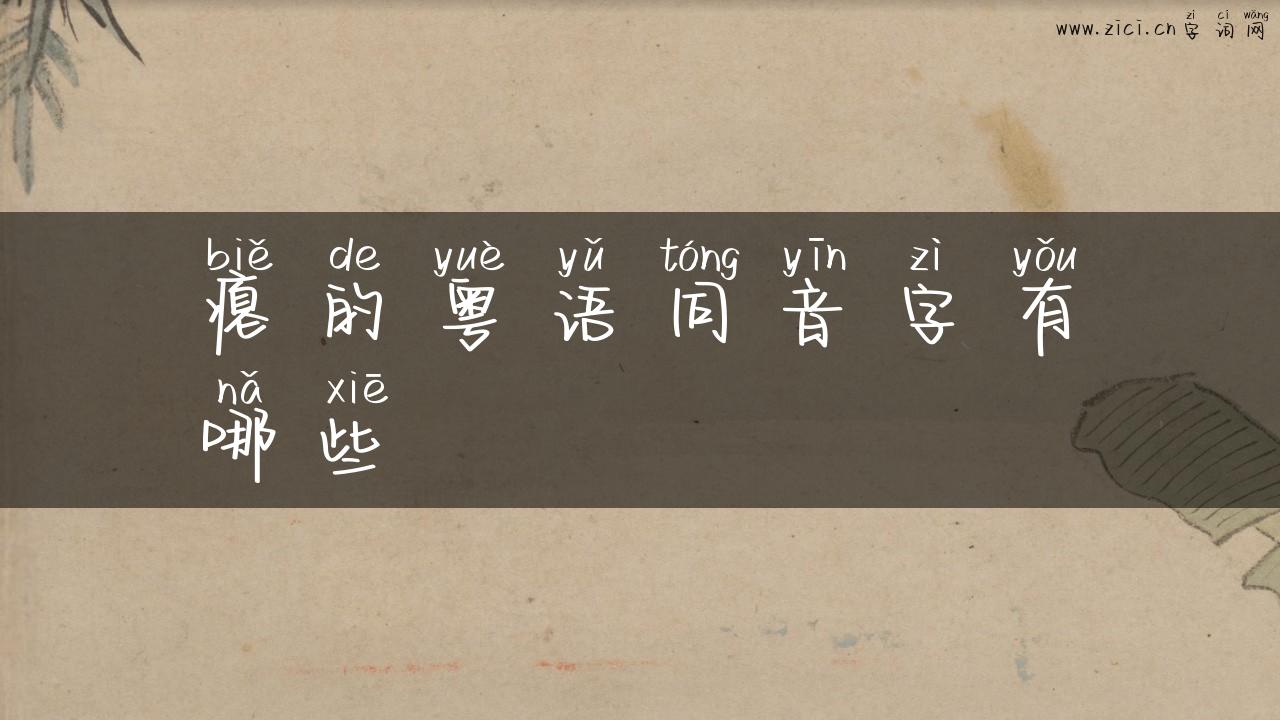 zì cí wǎng
www.zici.cn 字词网
biě de yuè yǔ tóng yīn zì yǒu
瘪的粤语同音字有
nǎ xiē
哪些